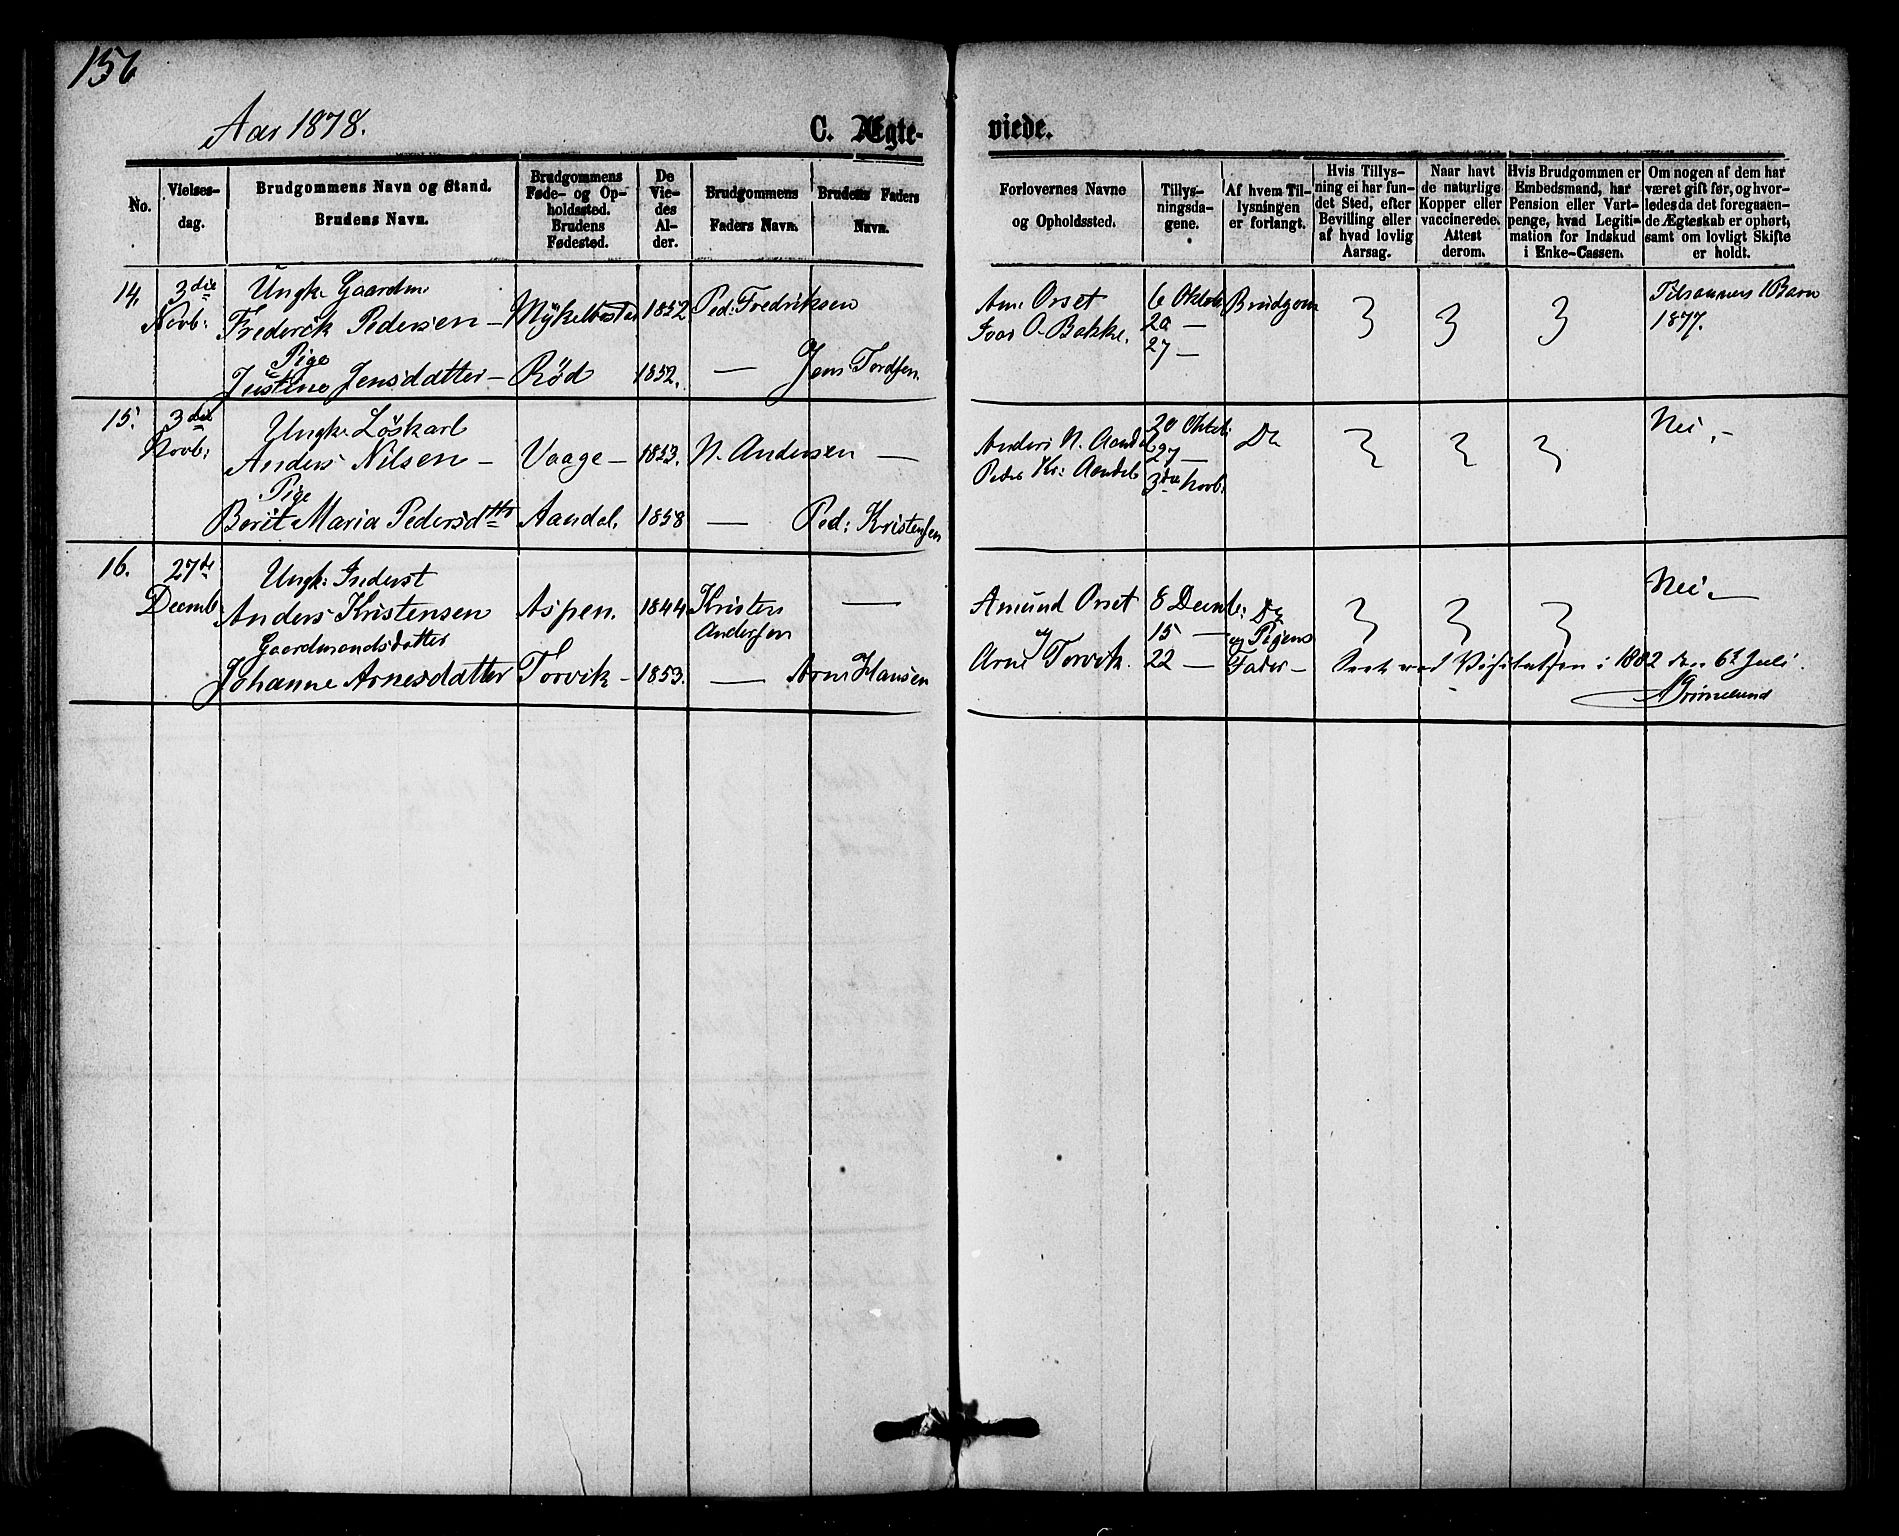 156
Aar 1878.
C. Ægte-
viede.
No.
Vielses-
dag.
Brudgommens Navn og Stand.
Brudens Navn.
Brudgommens
Føde- og Op-
holdssted.
Brudens
Fødested.
De
Vie-
des
Al-
der.
Brudgommens
Faders Navn.
Brudens Faders
Navn.
Forlovernes Navne
og Opholdssted.
Tillys-
ningsda-
gene.
Af hvem Til-
lysningen
er forlangt.
Hvis Tillys-
ning ei har fun-
det Sted, efter
Bevilling eller
af hvad lovlig
Aarsag.
Naar havt
de naturlige
Kopper eller
vaccinerede.
Attest
derom.
Hvis Brudgommen er
Embedsmand, har
Pension eller Vart-
penge, hvad Legiti-
mation for Indskud
i Enke-Cassen.
Om nogen af dem har
været gift før, og hvor-
ledes da det foregaaen-
de Ægteskab er ophørt,
samt om lovligt Skifte
er holdt.
14.
3die
Novb:
Ungk. Gaardm.
Frederik Pedersen –
Pige
Justine Jensdatter –
Mykelbostad
Rød
1852
1852.
Ped: Fredriksen
—
Jens Tordsen.
Orset
Ivar O. Bakke.
6 Oktob
20 —
27 —
Brudgom
Tilsammen 1 Barn
1877.
15.
3die
Novb:
Ungk. Løskarl
Anders Nilsen –
Pige
Berit Maria Pedersdtr
Vaage –
Aandal.
1853.
1858
N. Andersen
—
—
Ped: Kristensen
Anders N. Aandal
Peder Kr: Aandal
20 Oktob:
27 —
3die Novb.
Do
Nei. –
16.
27de
Decemb
Ungk. Inderst
Anders Kristensen
Gaardmandsdatter
Johanne Arnesdatter
Aspen.
Torvik –
1844
1853.
Kristen
Andersen
—
—
Arne Hansen
Amund Orset
og
Arne Torvik.
8 Decemb:
15 —
22 —
Do
og Pigens
Fader –
Nei. –
Seet ved Visitatsen i 1882 den 6te Juli.
Grimelund